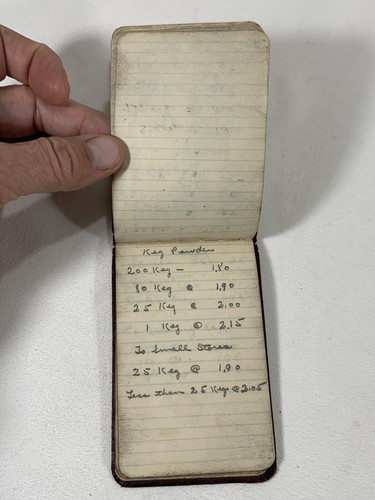 Keg Powder
200 Keg — 1.80
80 Keg @ 1.90
25 Keg @ 2.00
1 Keg @ 2.15
To Small Stores
25 Keg @ 1.90
Less than 25 Kegs @ 2.05